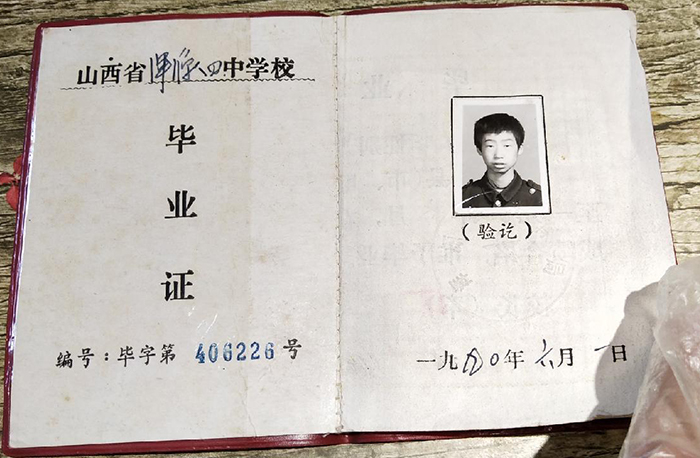 山西省浑源四中学校
毕
业
证
编号：毕字第 406226 号
(验讫)
一九九〇年六月一日